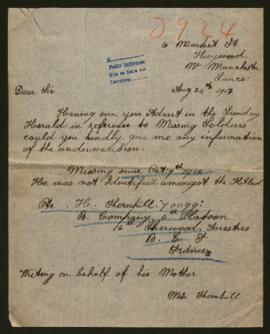 3924
6 Market St
Heywood
Nr Manchester
Lancs
Aug 26th 1917
Dear Sir
Having seen your Advert in the Sunday
Herald in reference to Missing Soldiers
could you kindly give me any information
of the undermention.
Missing since Oct 9th 1916
He was not Identified amongst the Killed
Pte H. Thornhill: 70099:
B. Company 6th Platoon
16th Sherwood Foresters
B. E. F
France
Writing on behalf of his Mother
Mrs Thornhill